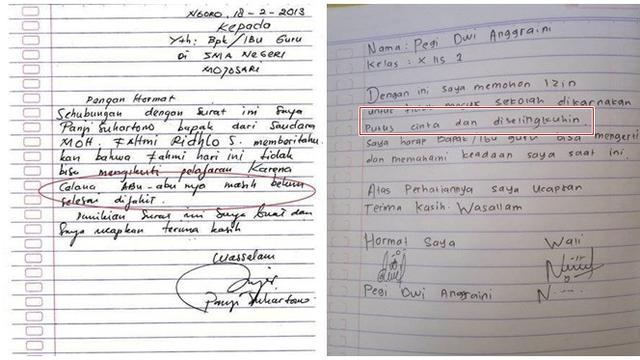 NGORO, 18-2-2013
Kepada
Yth: Bpk/Ibu Guru
Di SMA NEGERI
MOJOSARI
Dengan Hormat
Sehubungan dengan surat ini Saya
Panji Suhartono bapak dari Saudara
MOH. FAHMI RIDHLO S. memberitahu
kan bahwa Fahmi hari ini tidak
bisa mengikuti pelajaran Karena
Celana Abu-abu nya masih belum
selesai dijahit.
Demikian Surat ini Saya buat dan
Saya ucapkan terima kasih
Wassalam
Panji Suhartono
Nama: Pegi Dwi Anggraini
Kelas: X IIS 2
Dengan ini saya memohon Izin
untuk tidak masuk sekolah dikarnakan
Putus cinta dan diselingkuhin.
Saya harap Bapak/Ibu guru bisa mengerti
dan memahami keadaan saya saat ini.
Atas Perhatiannya saya Ucapkan
Terima Kasih. Wasallam
Hormat Saya Wali
Pegi Dwi Anggraini N